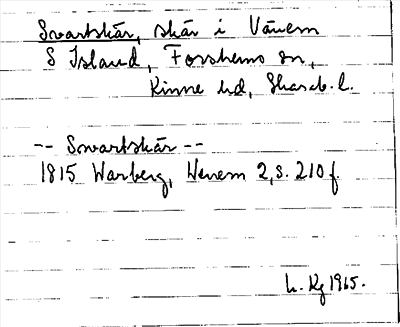 Svartskär, skär i Vänern
S Island, Forshems sn,
Kinne hd, Skarab. l.
-- Swartskär --
1815 Warberg, Wenern 2, s. 210 f.
L. Kg 1965.